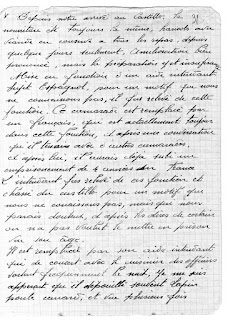 Depuis notre arrivé au Castillo, la
nourriture est toujours la même, haricots avec
viande en conserve à tous les repas depuis
quelques jours seulement, amélioration
promené, mais la préparation y est insuffisan
Mise en fonctions d'un aide intendant
sujet Espagnol, pour un motif que nous
ne connaissons pas, il fut relevé de cette
fonction. Ce camarade est remplacé par
un français, qui est actuellement toujours
dans cette fonction, d'après une conversation
que il tenais avec d'autres camarades.
et après lui, il aurais été sur un
emprisonnement de 4 années en France
L'intendant fut relevé de sa fonction et
chassé du castillo pour un motif que
nous ne connaissons pas, mais que nous
parais douteux, d'après les dires de certain
on n'a pas voulut le mettre en prison
vu son age.
Il est remplacé par son aide intendant
qui de concert avec le cuisinier des officiers
sortent fréquemment la nuit, je me suis
apperçut que il dépouille souvent lapin
poule canard, et vu plusieurs fois